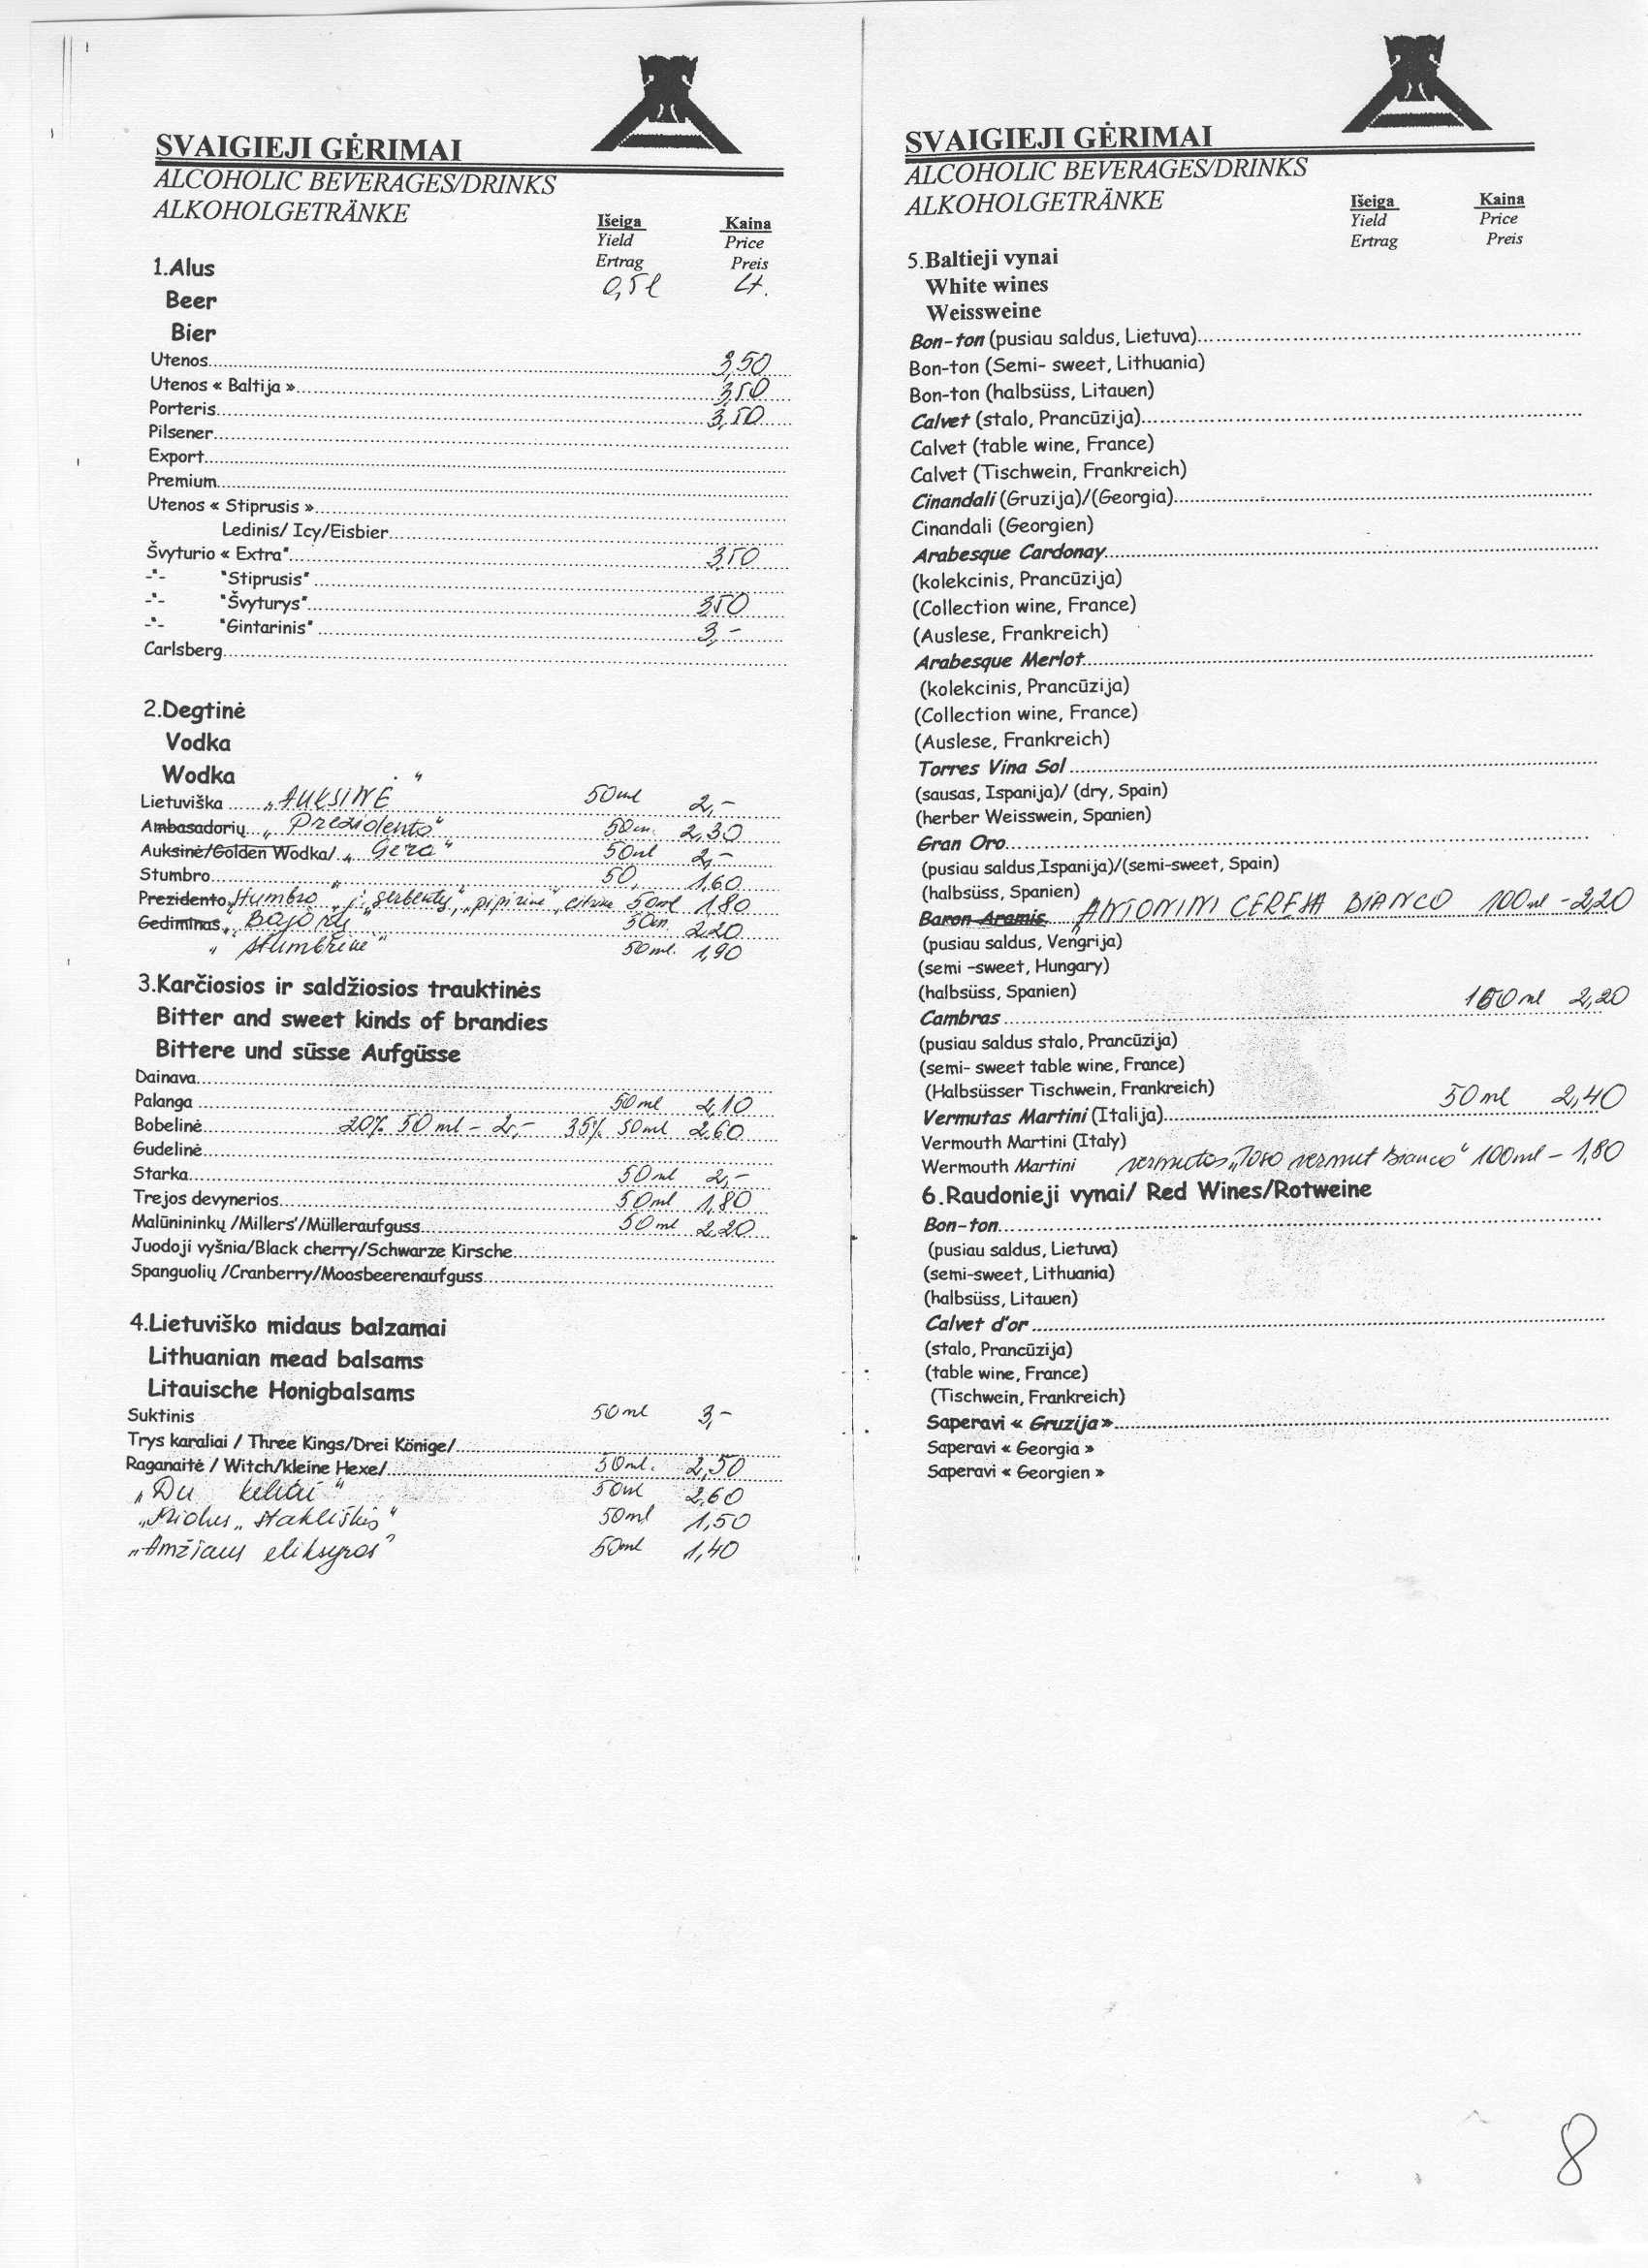 SVAIGIEJI GĖRIMAI
ALCOHOLIC BEVERAGES/DRINKS
ALKOHOLGETRÄNKE
Išeiga Kaina
Yield Price
Ertrag Preis
1.Alus 0,5l Lt.
Beer
Bier
Utenos 3,50
Utenos « Baltija » 3,50
Porteris 3,50
Pilsener
Export
Premium
Utenos « Stiprusis »
Ledinis/ Icy/Eisbier
Švyturio « Extra" 3,50
-"- "Stiprusis"
-"- "Švyturys" 3,50
-"- "Gintarinis" 3,-
Carlsberg
2.Degtinė
Vodka
Wodka
Lietuviška „AUKSINĖ" 50ml 2,-
Ambasadorių „Prezidento" 50m. 2,30
Auksinė/Golden Wodka/ „Gera" 50ml 2,-
Stumbro 50, 1,60
Prezidento „Stumbro 50ml 1,80
Gediminas „Bajorų" 50m. 2,20
„Stumbrinė" 50ml. 1,90
3.Karčiosios ir saldžiosios trauktinės
Bitter and sweet kinds of brandies
Bittere und süsse Aufgüsse
Dainava
Palanga 50ml 2,10
Bobelinė 20% 50ml - 2,- 35% 50ml 2,60
Gudelinė
Starka 50ml 2,-
Trejos devynerios 50ml 1,80
Malūnininkų /Millers'/Mülleraufguss 50ml 2,20
Juodoji vyšnia/Black cherry/Schwarze Kirsche
Spanguolių /Cranberry/Moosbeerenaufguss
4.Lietuviško midaus balzamai
Lithuanian mead balsams
Litauische Honigbalsams
Suktinis 50ml 3,-
Trys karaliai / Three Kings/Drei Könige/
Raganaitė / Witch/kleine Hexe/ 50ml. 2,50
„Du keliai" 50ml 2,60
„Midus „Stakliškės" 50ml 1,50
„Amžiaus eliksyras" 50ml 1,40
SVAIGIEJI GĖRIMAI
ALCOHOLIC BEVERAGES/DRINKS
ALKOHOLGETRÄNKE
Išeiga Kaina
Yield Price
Ertrag Preis
5.Baltieji vynai
White wines
Weissweine
Bon-ton (pusiau saldus, Lietuva)
Bon-ton (Semi- sweet, Lithuania)
Bon-ton (halbsüss, Litauen)
Calvet (stalo, Prancūzija)
Calvet (table wine, France)
Calvet (Tischwein, Frankreich)
Cinandali (Gruzija)/(Georgia)
Cinandali (Georgien)
Arabesque Cardonay
(kolekcinis, Prancūzija)
(Collection wine, France)
(Auslese, Frankreich)
Arabesque Merlot
(kolekcinis, Prancūzija)
(Collection wine, France)
(Auslese, Frankreich)
Torres Vina Sol
(sausas, Ispanija)/ (dry, Spain)
(herber Weisswein, Spanien)
Gran Oro
(pusiau saldus,Ispanija)/(semi-sweet, Spain)
(halbsüss, Spanien)
Baron Aramis „ANTONINI CERESA BIANCO 100ml - 2,20
(pusiau saldus, Vengrija)
(semi -sweet, Hungary)
(halbsüss, Spanien)
Cambras 100ml 2,20
(pusiau saldus stalo, Prancūzija)
(semi- sweet table wine, France)
(Halbsüsser Tischwein, Frankreich)
Vermutas Martini (Italija) 50ml 2,40
Vermouth Martini (Italy)
Wermouth Martini vermutas „Toso vermut Bianco" 100ml - 1,80
6.Raudonieji vynai/ Red Wines/Rotweine
Bon-ton
(pusiau saldus, Lietuva)
(semi-sweet, Lithuania)
(halbsüss, Litauen)
Calvet d'or
(stalo, Prancūzija)
(table wine, France)
(Tischwein, Frankreich)
Saperavi « Gruzija»
Saperavi « Georgia »
Saperavi « Georgien »
8